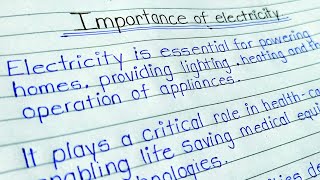 Importance of electricity
Electricity is essential for powering
homes, providing lighting, heating and the
operation of appliances.
It plays a critical role in health-ca
enabling life saving medical equi
hnologies.
ities de